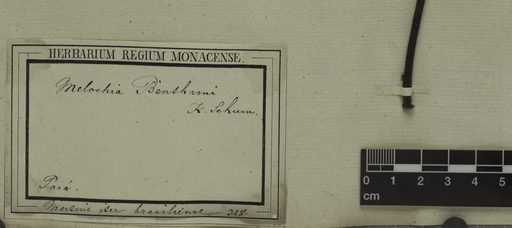 HERBARIUM REGIUM MONACENSE.
Melochia Benthami
K. Schum.
Pará.
Martius iter brasiliense
0 1 2 3 4 5
cm